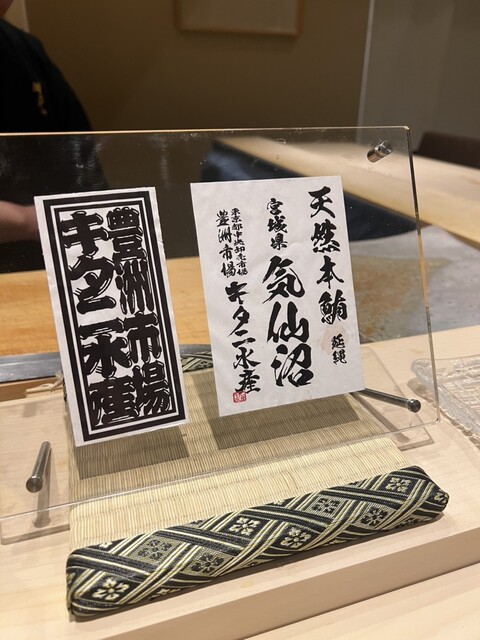 豊洲市場
キタニ水産
天然本鮪 延縄
宮城県 気仙沼
東京都中央卸売市場
豊洲市場 キタニ水産